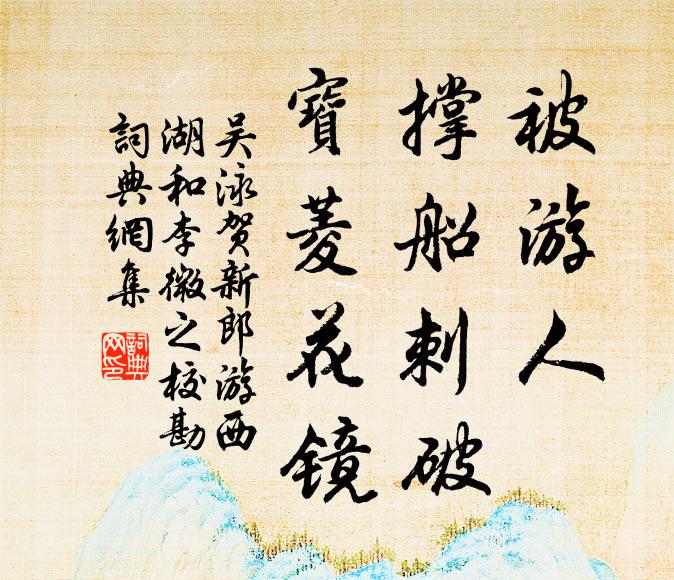 被游人
撑船刺破
寶菱花镜
吴泳贺新郎游西
湖和李微之校勘
詞典網集
詞典
网印